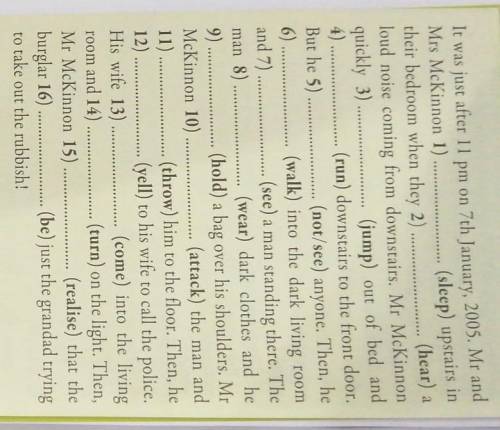 It was just after 11 pm on 7th January, 2005. Mr and
Mrs McKinnon 1) .................... (sleep) upstairs in
their bedroom when they 2) .................... (hear) a
loud noise coming from downstairs. Mr McKinnon
quickly 3) .................... (jump) out of bed and
4) .................... (run) downstairs to the front door.
But he 5) .................... (not/see) anyone. Then, he
6) .................... (walk) into the dark living room
and 7) .................... (see) a man standing there. The
man 8) .................... (wear) dark clothes and he
9) .................... (hold) a bag over his shoulders. Mr
McKinnon 10) .................... (attack) the man and
11) .................... (throw) him to the floor. Then, he
12) .................... (yell) to his wife to call the police.
His wife 13) .................... (come) into the living
room and 14) .................... (turn) on the light. Then,
Mr McKinnon 15) .................... (realise) that the
burglar 16) .................... (be) just the grandad trying
to take out the rubbish!